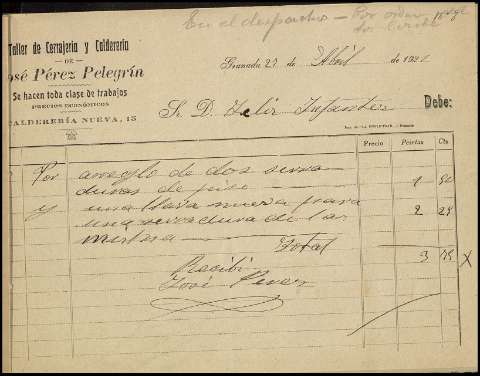 En el despacho - Por orden
Taller de Cerrajería y Calderería
DE
José Pérez Pelegrín
Se hacen toda clase de trabajos
PRECIOS ECONÓMICOS
CALDERERÍA NUEVA, 15
Granada 27 de Abril de 192
Sr. D. Felix Infantes Debe:
Precio Pesetas Cts
Por arreglo de dos cerra
duras de piso — 1 50
y una llave nueva para 2 25
una cerradura de las
mismas — Total
3 75 X
Recibí
José Perez